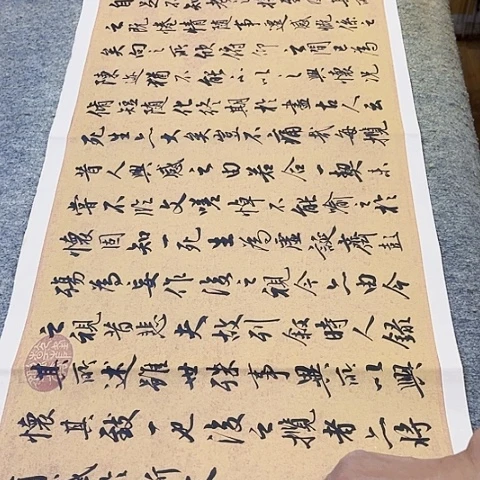 不知老
之既惓情隨事遷感慨係之
矣向之所欣俛仰之間已為
陳迹猶不能不以之興懷況
脩短隨化終期於盡古人云
死生亦大矣豈不痛哉每攬
昔人興感之由若合一契未
嘗不臨文嗟悼不能喻之於
懷固知一死生為虛誕齊彭
殤為妄作後之視今亦由今
之視昔悲夫故列敘時人錄
其所述雖世殊事異所以興
懷其致一也後之攬者亦將